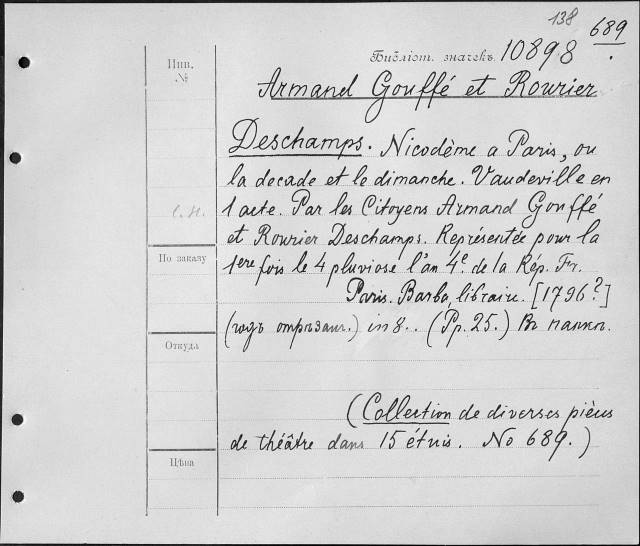 138
689
Инв.
№
Библіот. значекъ 10898
Armand Gouffé et Rourier
Deschamps. Nicodème a Paris, ou
la decade et le dimanche. Vaudeville en
1 acte. Par les Citoyens Armand Gouffé
et Rourier Deschamps. Représentée pour la
По заказу
1ere fois le 4 pluviose l'an 4e. de la Rép. Fr.
Paris. Barba, libraire. [1796?]
(годъ отрѣзан.) in 8.. (Pp. 25.) Въ папкѣ.
Откуда
(Collection de diverses pièces
de théâtre dans 15 étuis. No 689.)
Цѣна